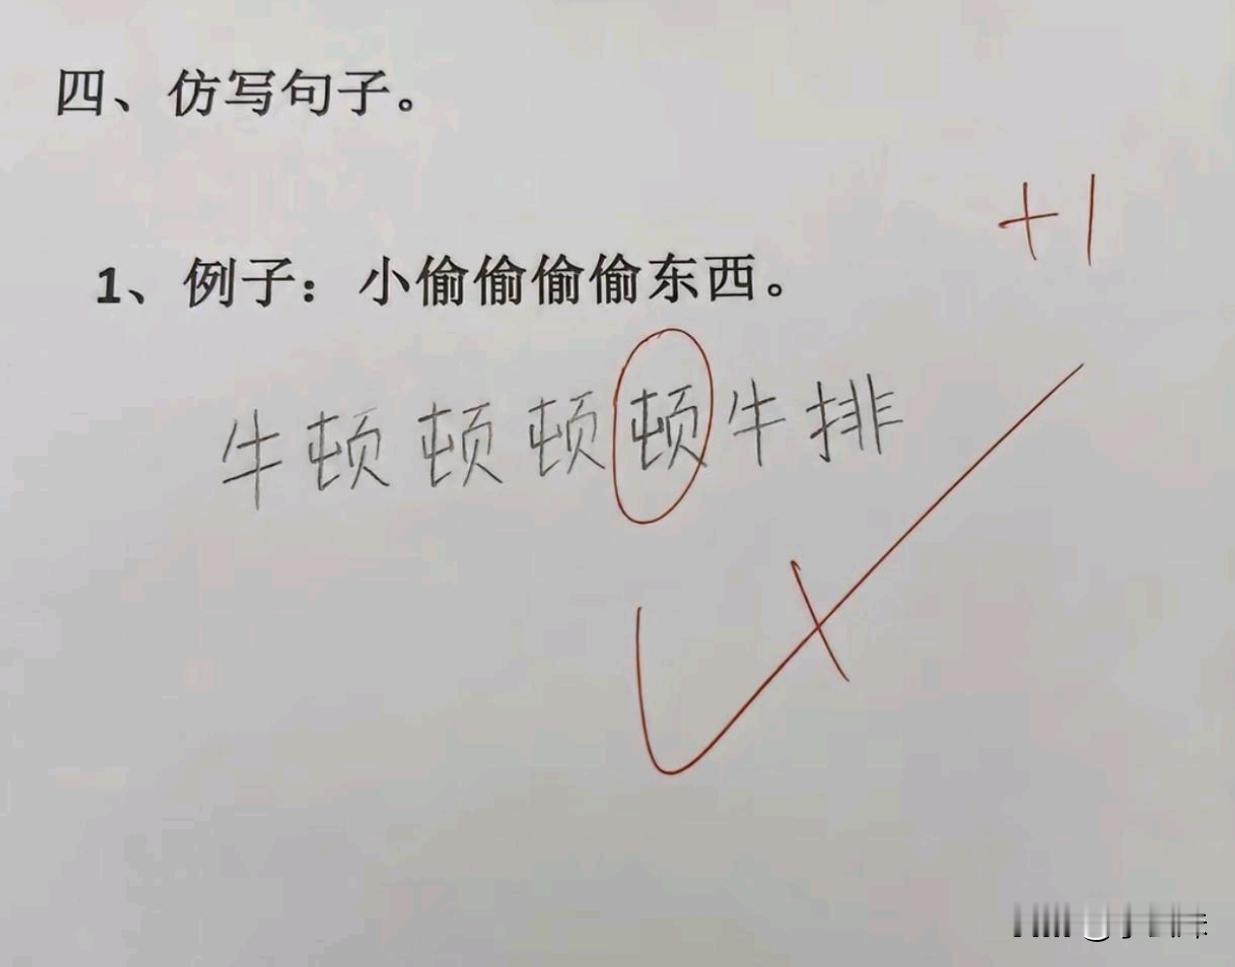 四、仿写句子。
+1
1、例子：小偷偷偷偷东西。
牛顿顿顿顿牛排